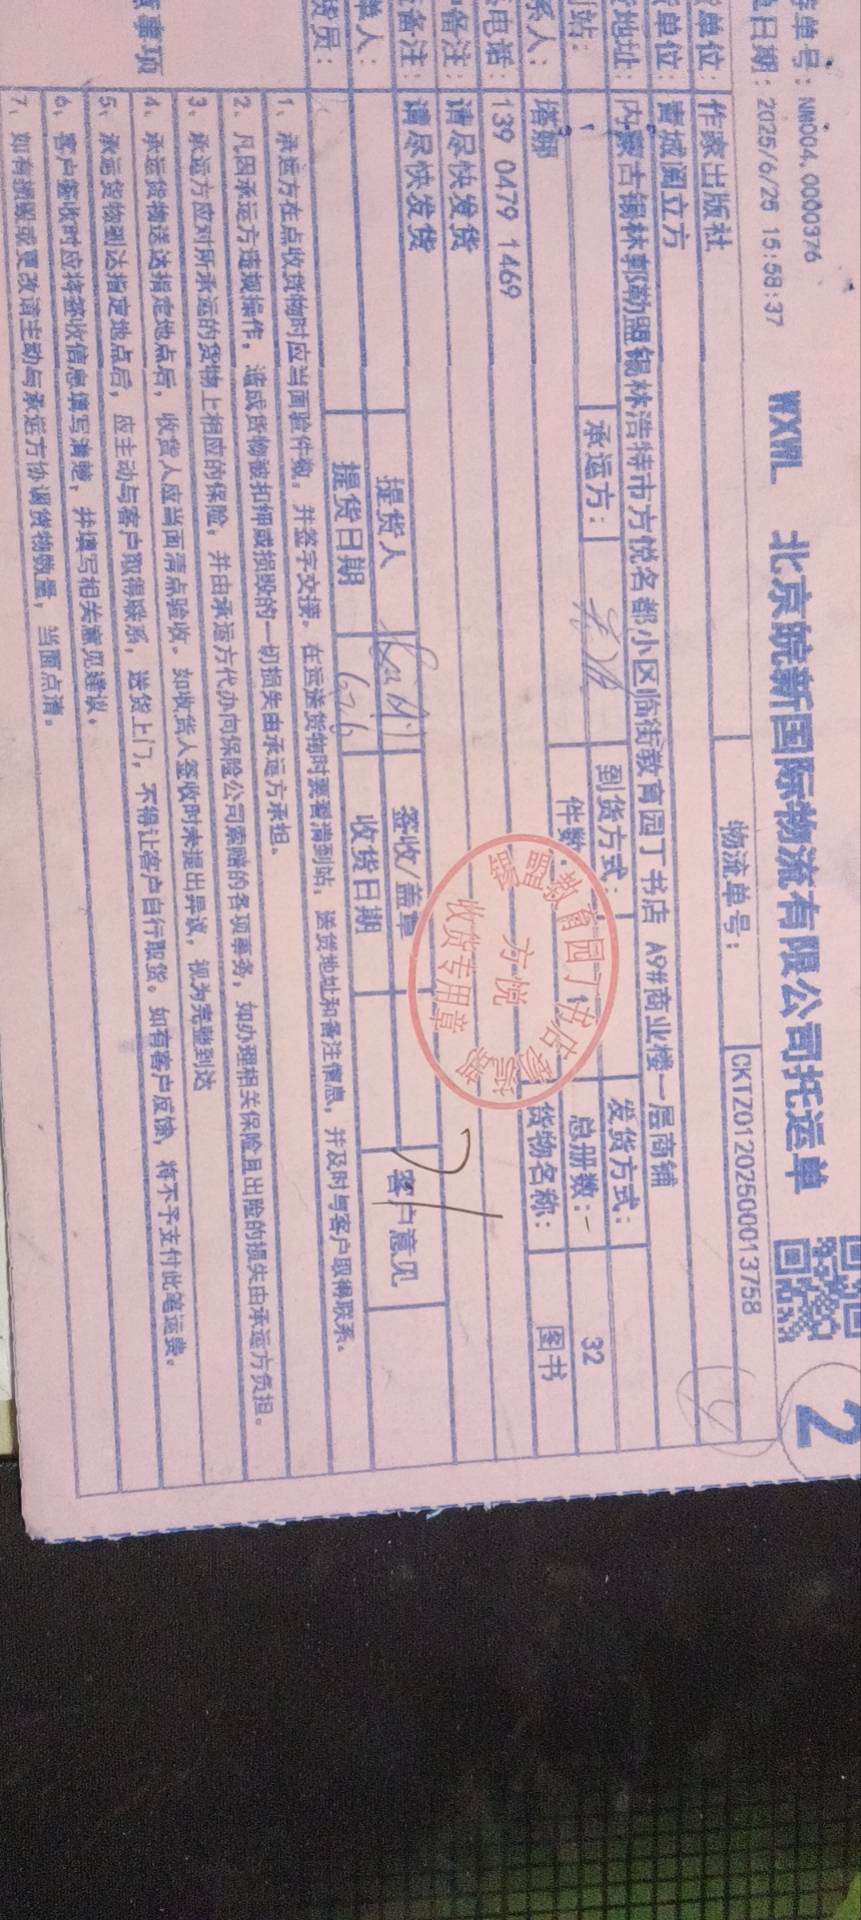 WXWL 北京皖新国际物流有限公司托运单
2
单号：NM004.0000376
日期：2025/6/25 15:58:37
单位：作家出版社
物流单号：
CKTZ01202500013758
单位：青城阅立方
地址：内蒙古锡林郭勒盟锡林浩特市方悦名都小区临街教育园丁书店 A9#商业楼一层商铺
站：
承运方：
到货方式：
发货方式：
系人：塔娜
件数：
总册数：
32
电话：139 0479 1469
货物名称：
图书
备注：请尽快发货
备注：请尽快发货
单人：
提货人
签收/盖章
客户意见
货员：
提货日期
收货日期
锡盟教育园丁书店
方悦
收货专用章
事项
1、承运方在点收货物时应当面验件数，并签字交接。在运送货物时要看清到站，送货地址和备注信息，并及时与客户取得联系。
2、凡因承运方违规操作，造成货物被扣押或损毁的一切损失由承运方承担。
3、承运方应对所承运的货物上相应的保险，并由承运方代办向保险公司索赔的各项事务，如办理相关保险且出险的损失由承运方负担。
4、承运货物送达指定地点后，收货人应当面清点验收。如收货人签收时未提出异议，视为完整到达
5、承运货物到达指定地点后，应主动与客户取得联系，送货上门，不得让客户自行取货。如有客户反馈，将不予支付此笔运费。
6、客户签收时应将签收信息填写清楚，并填写相关意见建议。
7、如有损毁或更改请主动与承运方协调货物数量，当面点清。